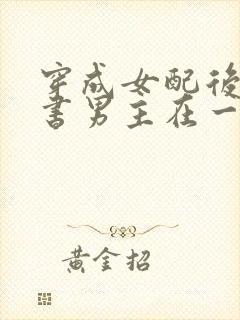 穿成女配後
書男主在一
黃金招